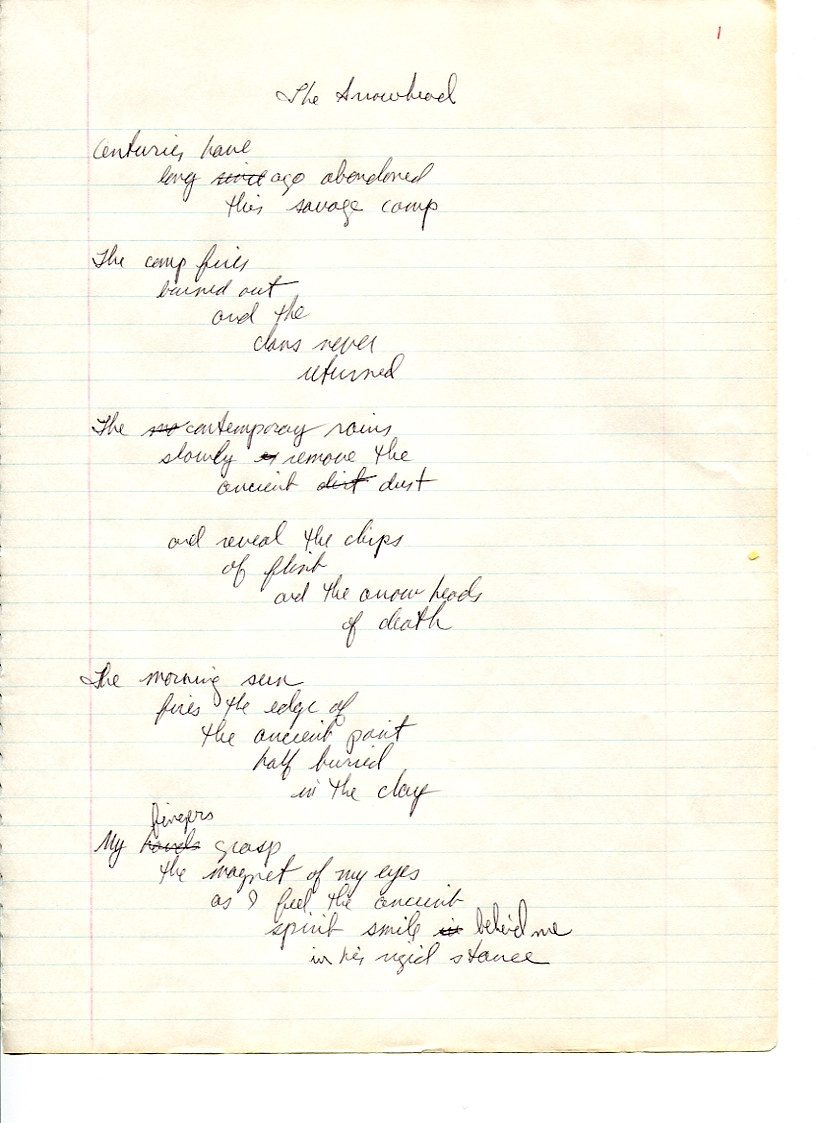 1
The Arrowhead
Centuries have
long since ago abandoned
this savage camp
The camp fires
burned out
and the
clans never
returned
The contemporay rains
slowly remove the
ancient dirt dust
and reveal the chips
of flint
and the arrow heads
of death
The morning sun
fires the edge of
the ancient point
half buried
in the clay
fingers
My hands grasp
the magnet of my eyes
as I feel the ancient
spirit smile behind me
in his rigid stance